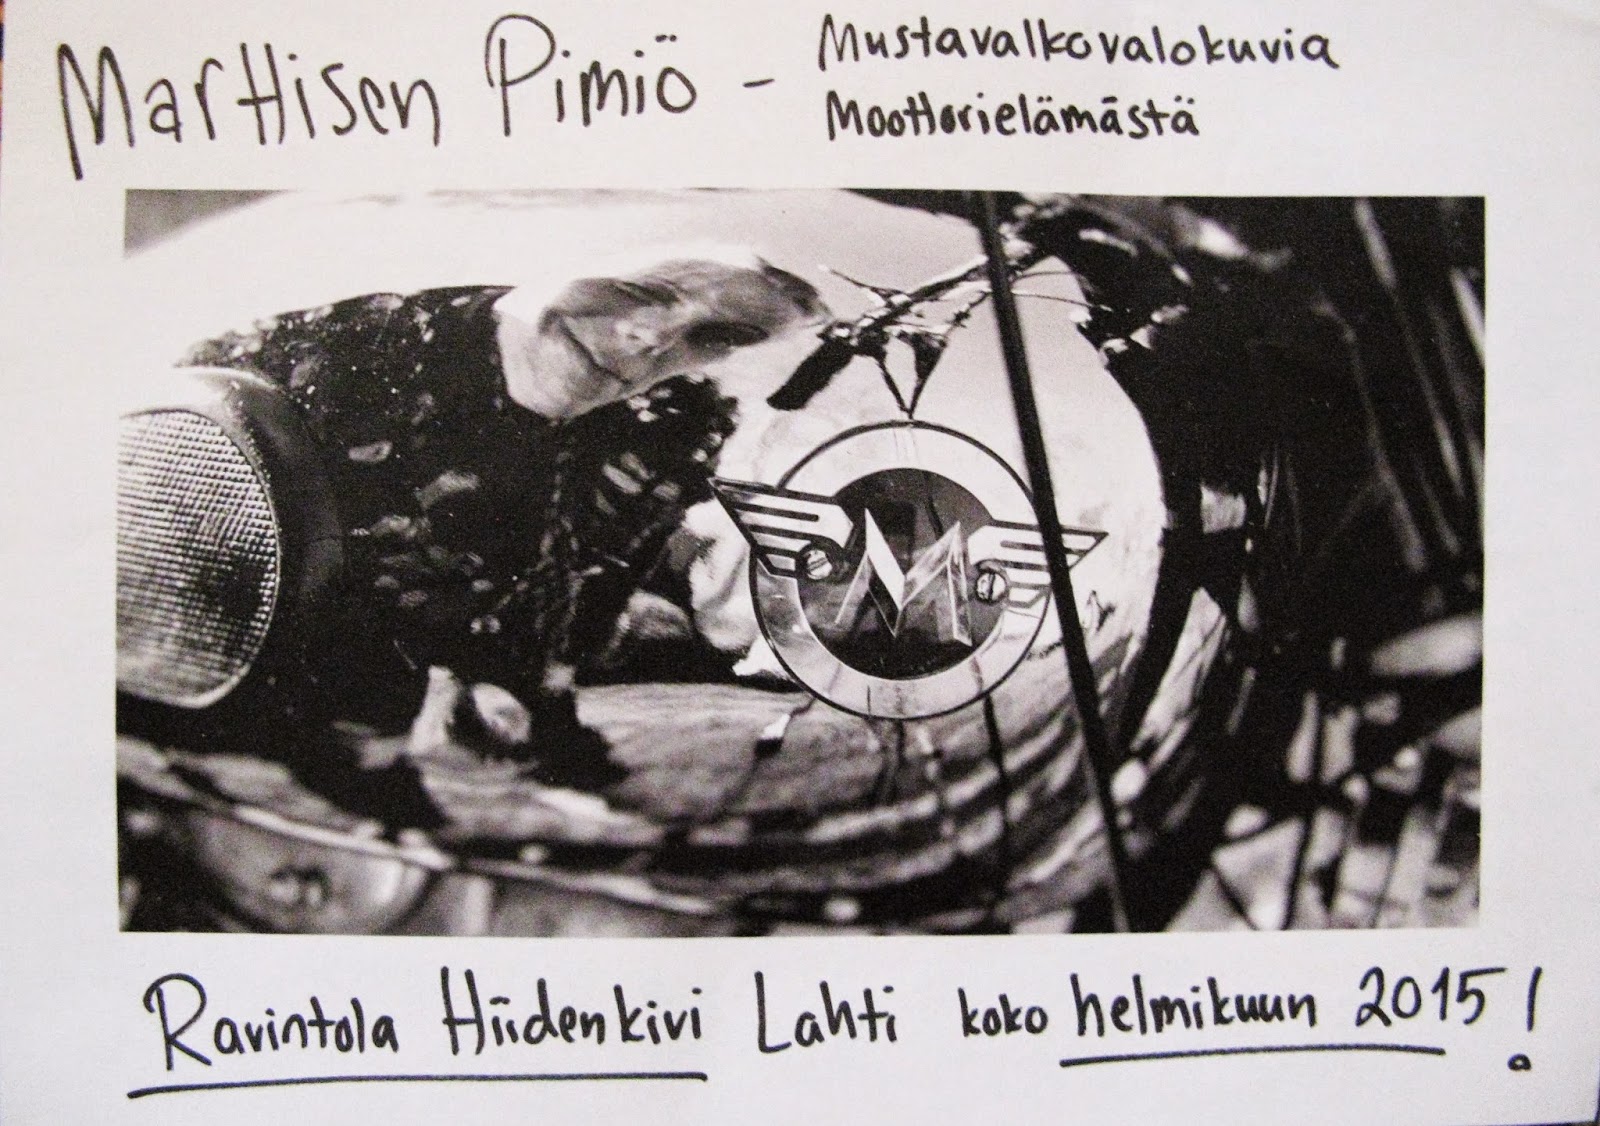 Marttisen Pimiö - Mustavalkovalokuvia
Moottorielämästä
M
Ravintola Hiidenkivi Lahti koko helmikuun 2015!